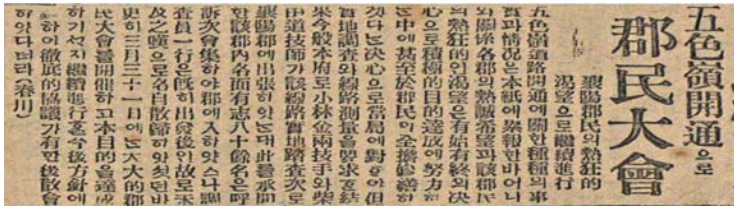 五色嶺開通으로
郡民大會
襄陽郡民의熱狂的
渴望으로繼續進行
五色嶺道路開通에關한種種의事
實과情況은本紙에累報한바어니
와關係各郡의熱誠希望과該郡民
의熱狂的渴望은有始有終의決
心으로積極的目的達成에努力하
는中에甚至於郡民이全擔修繕하
겟다는決心으로當局에對하야但
實地調査와線路測量을要求한結
果今般本府로小林金兩技手와柴
田道技師가該線路實地踏査次로
襄陽郡에出張하엿는대此를承聞
한該郡內各面有志八十餘名은呼
訴次會集하야郡에入하얏스나調
査員一行은旣히出發後인故로未
及之嘆으로各自散歸하얏던바
更히三月三十一日에는大大的郡
民大會를開催하고本目的을達成
하기지繼續進行홀今後方針에
하야徹底的協議가有한後散會
하얏다더라(春川)